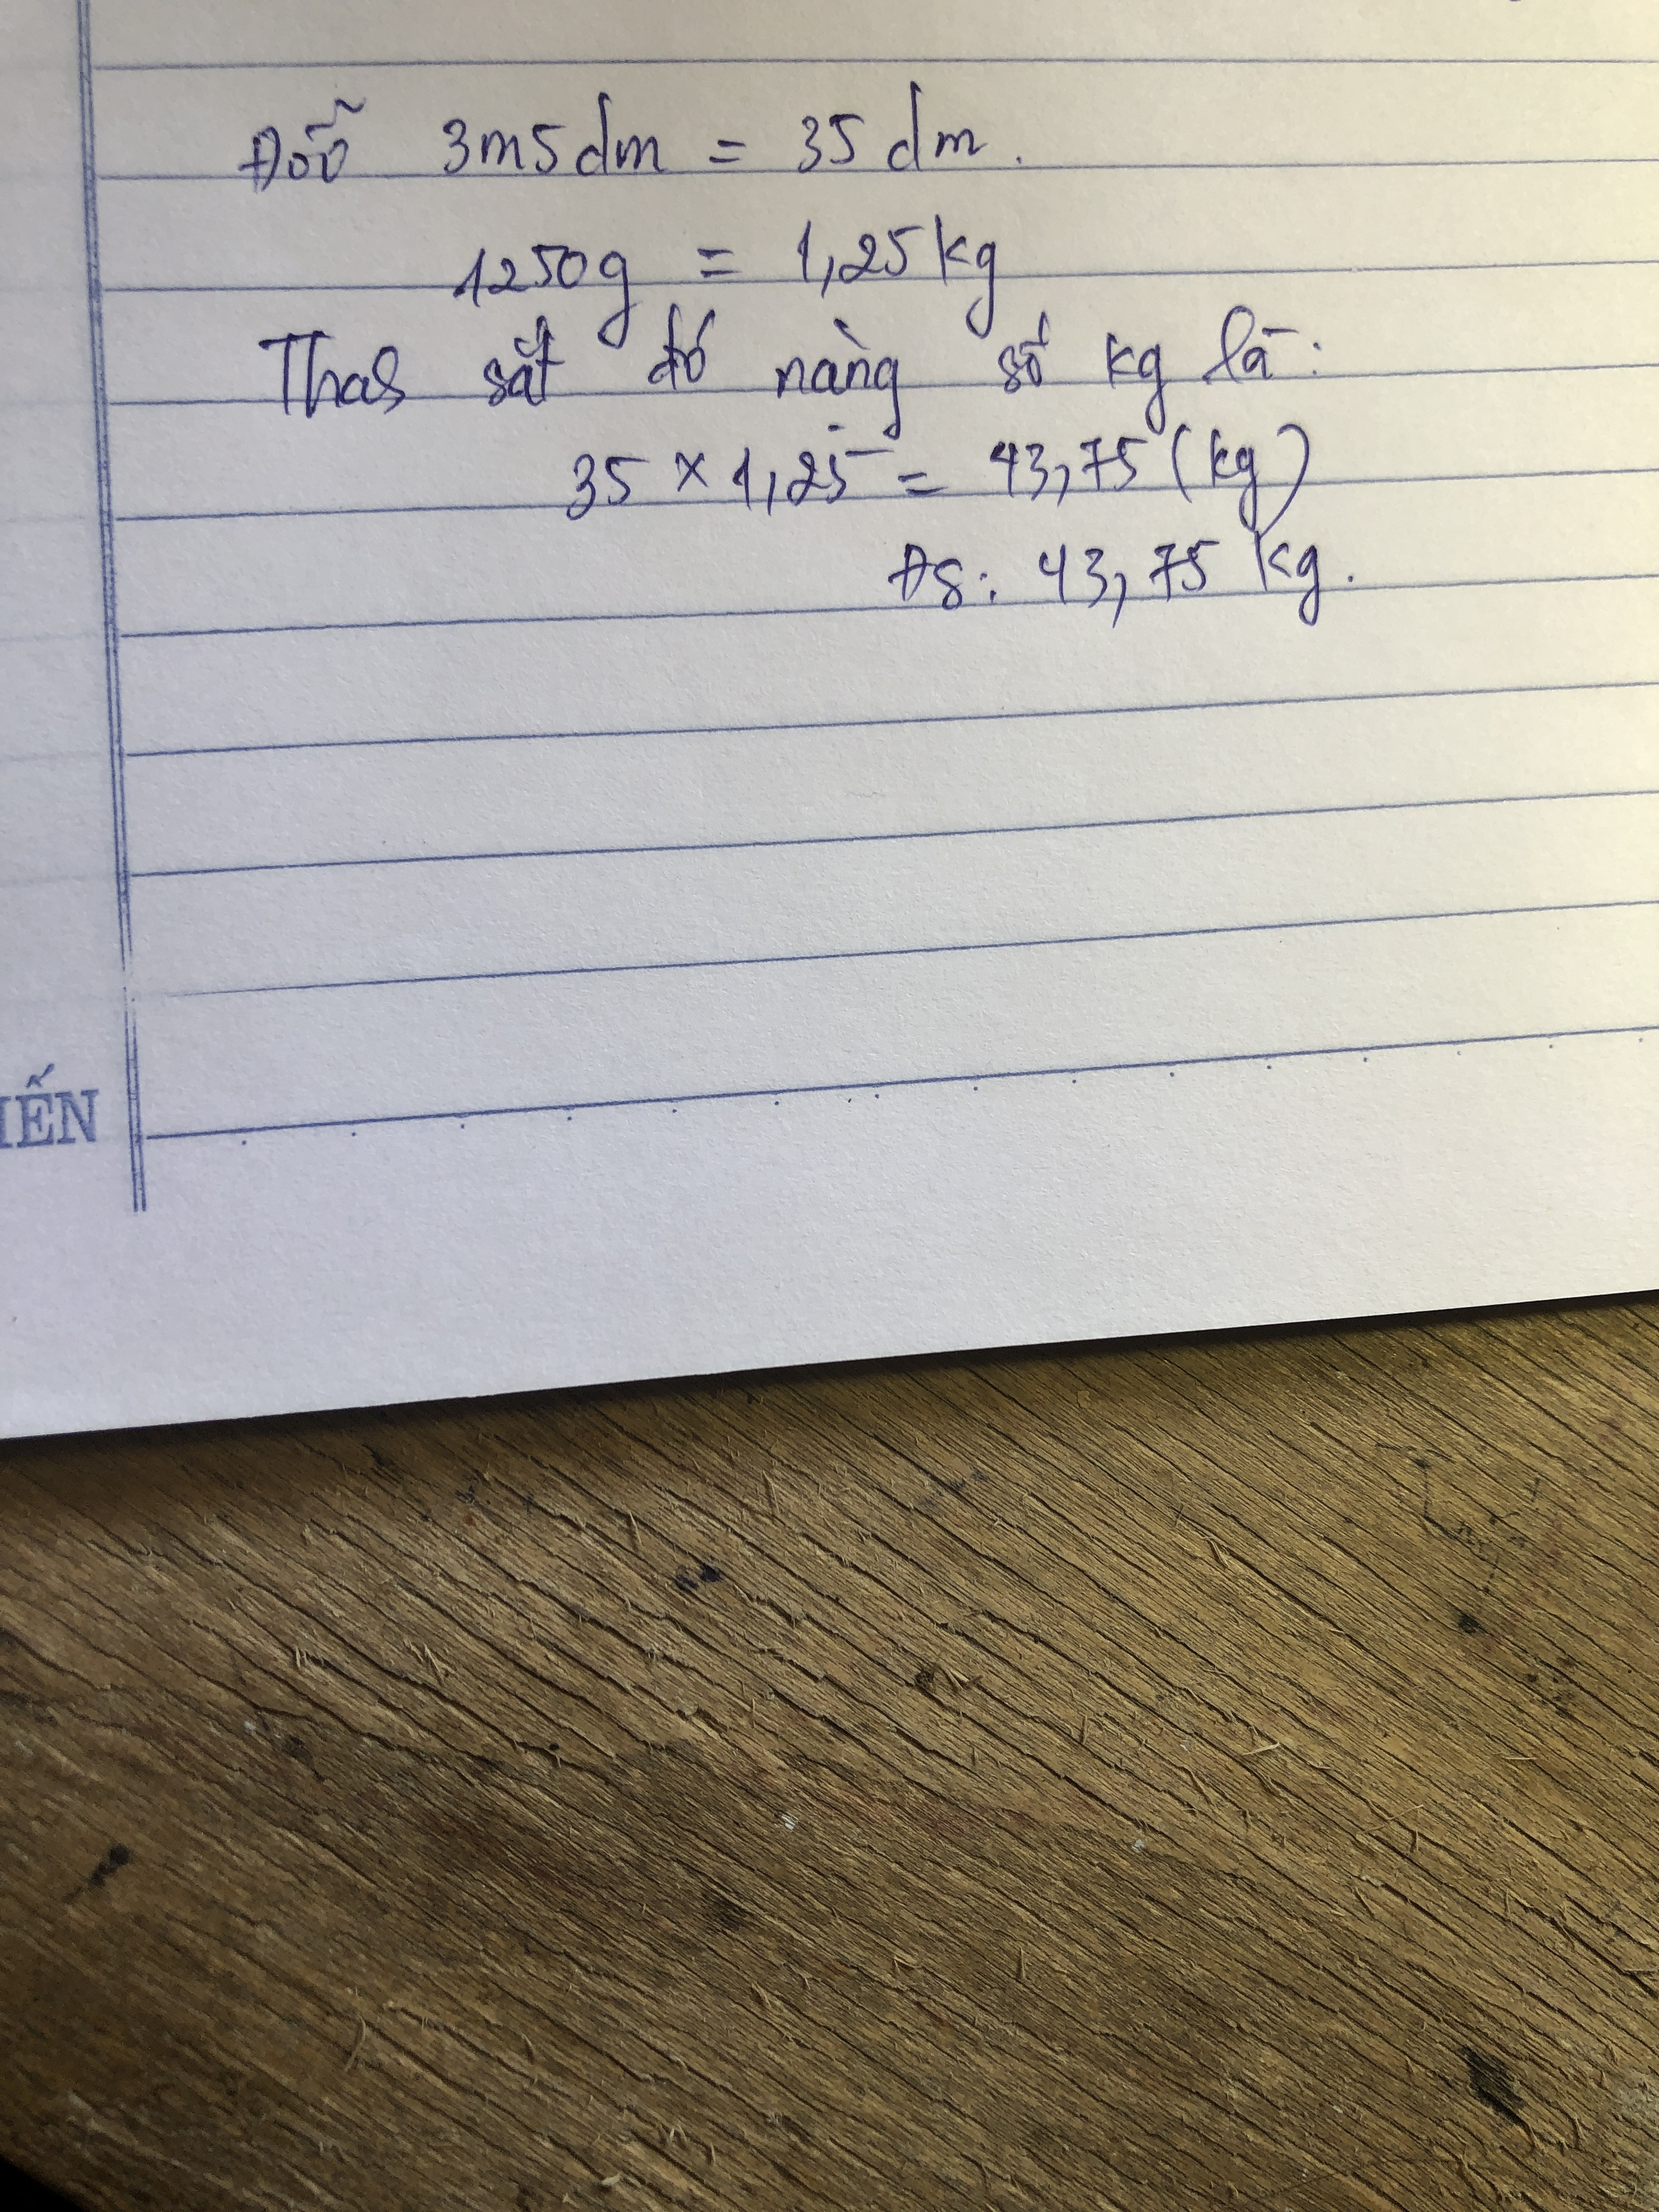 Đổi 3m5dm = 35 dm.
1250g = 1,25 kg
Thas sắt đó nặng số kg là:
35 × 1,25 = 43,75 (kg)
Đs: 43,75 kg.
IẾN